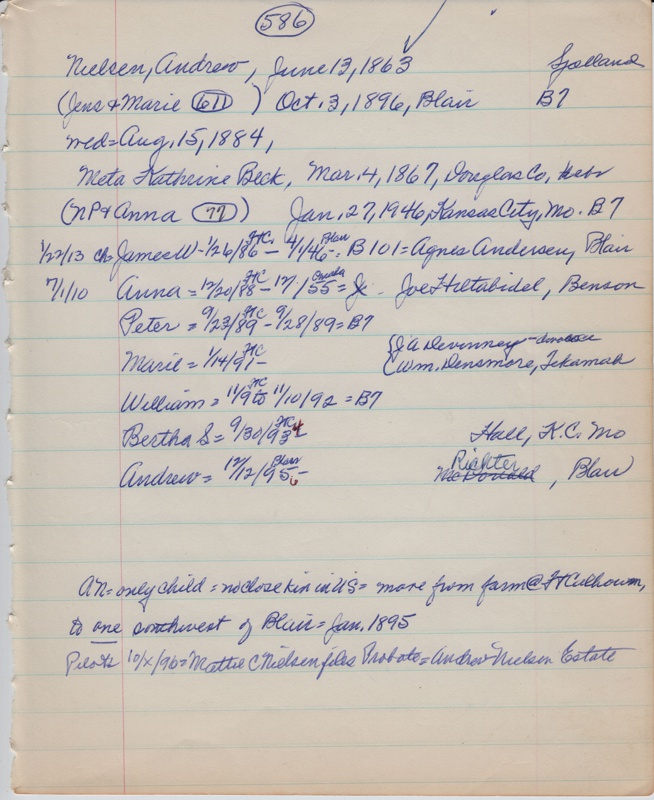 586
Nielsen, Andrew, June 13, 1863 Sjælland
(Jens & Marie 611) Oct. 3, 1896, Blair B7
wed = Aug. 15, 1884,
Meta Kathrine Beck, Mar. 4, 1867, Douglas Co, Nebr
(NP & Anna 77) Jan. 27, 1946, Kansas City, Mo. B7
1/22/13 ch = James W - 1/26/86 FtC - 4/1/46 Blair = B 101 = Agnes Andersen, Blair
7/1/10 Anna = 12/20/88 FtC - 12/ /55 Omaha = Joe Hiltabidel, Benson
Peter = 9/23/89 FtC - 9/28/89 = B7
Marie = 1/14/91 FtC - {J A Devinney - divorce
(Wm. Densmore, Tekamah
William = 11/9 FtC to 11/10/92 = B7
Bertha S = 9/30/93 FtC 4 - Hall, K.C. Mo
Andrew = 12/12/95 Blair 6 - McDonald Richter, Blair
AN = only child = no close kin in US = move from farm @ Ft Calhoun,
to one southwest of Blair = Jan. 1895
Pilot 10/x/96 = Mattie C Nielsen files Probate = Andrew Nielsen Estate